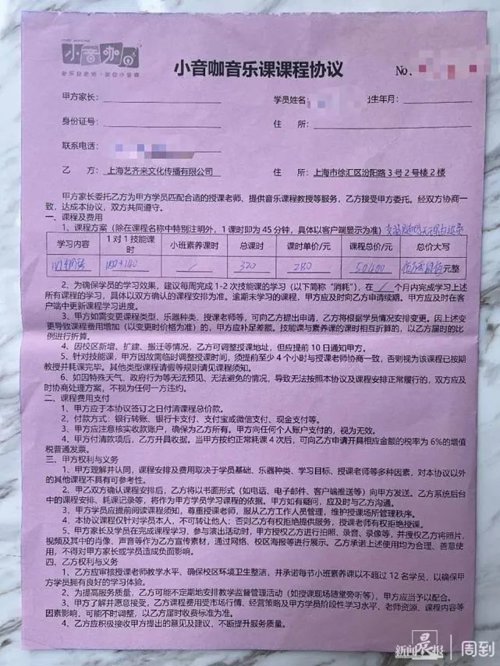 小音咖
小音咖音乐课课程协议
No.
甲方家长：
学员姓名
出生年月：
身份证号：
住 所：
联系电话：
乙 方： 上海艺齐来文化传播有限公司
住 所： 上海市徐汇区汾阳路3号2号楼2楼
甲方家长委托乙方为甲方学员匹配合适的授课老师，提供音乐课程教授等服务，乙方接受甲方委托。经双方协商一
致，达成本协议，双方共同遵守。
一、课程及费用
1、课程方案（除在课程名称中特别注明外，1课时即为45分钟，具体以客户端显示为准）
学习内容 1对1技能课时 小班素养课时 总课时 课时单价/元 课程总价/元 总价大写
180+140 / 320 元整
2、为确保学员的学习效果，建议每周完成1-2次技能课的学习（以下简称“消耗”），在 / 个月内完成学习上述
所有课程的学习，具体以双方确认的课程安排为准。逾期未开学习的课程，甲方应及时向乙方申请续期，甲方应及时在客
户端中更新课程学习进度。
3、甲方如需变更课程类型、乐器种类、授课老师等，可向乙方提出申请，乙方将根据学员情况安排变更。因上述变
更导致课程费用增加（以变更时价格为准）的，甲方应补足差额。技能课与素养课的课时相互折算的，以乙方届时的比
例进行折算。
4、因校区新增、扩建、搬迁等情况，乙方可调整授课地址，但应提前10日通知甲方。
5、针对技能课，甲方因故需临时调整授课时间，须提前至少4个小时与授课老师协商一致，否则视为该课程已按期
教授并耗课完毕。其他类型课程请假等规则请见课程须知。
6、如因特殊天气、政府行为等无法预见、无法避免的情况，导致无法按照本协议及课程安排正常履行的，双方应及
时协商处理方案，不视为任何一方违约。
二、课程费用支付
1、甲方应于本协议签订之日付清课程总价款。
2、付款方式：银行转账、银行卡支付、支付宝或微信支付、现金支付等。
3、甲方应注意核实收款账户，确保为乙方所有。甲方向任何个人账户支付的，视为无效。
4、甲方付清款项后，乙方开具收据。当甲方按约正常耗课4次后，可向乙方申请开具相应金额的税率为6%的增值
税普通发票。
三、甲方权利与义务
1、甲方理解并认同，课程安排及费用取决于学员基础、乐器种类、学习目标、授课老师等多种因素，对本协议以外
的其他课程不具有可参考性。
2、甲乙双方确认课程安排后，乙方将以书面形式（如电话、电子邮件、客户端推送等）向甲方发送。乙方系统后台
中的课程安排、耗课记录等，将作为甲方学员学习课程的依据。甲方如有疑问，应及时与乙方沟通。
3、甲方学员应提前阅读课程须知，尊重授课老师，服从乙方工作人员管理，维护授课场所管理秩序。
4、本协议课程仅针对学员本人，不可转让他人；否则乙方有权拒绝提供服务，授课老师有权拒绝授课。
5、甲方家长及学员在完成课程学习、参与演出活动时，甲方授权乙方进行拍照、录音、录像等，并授权乙方将照片、
视频及其中的肖像、声音等作为乙方宣传素材，通过网络、校区海报等进行展示。乙方承诺上述使用均为合理、善意使
用，不得对甲方家长或学员造成负面影响。
四、乙方权利与义务
1、乙方应审核授课老师教学水平，确保校区环境卫生整洁，并承诺每节小班素养课以不超过12名学员，以确保甲
方学员拥有良好的学习体验。
2、为提高服务质量，乙方可能不定期地安排教学监督管理活动（如授课现场随堂旁听等），甲方应当予以配合。
3、甲方了解并愿意接受，乙方课程费用受市场行情、经营策略及甲方学员阶段性学习水平、老师资源、课程内容等
因素影响，可能不时调整，以乙方届时收费标准为准。
4、乙方应积极接收甲方提出的意见及建议，不断提升服务质量。
新闻晨报 周到